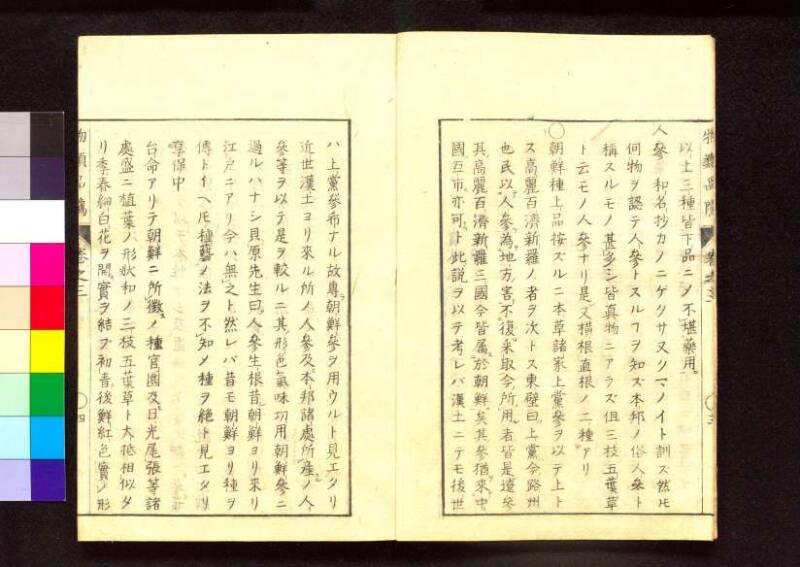 以上三種皆下品ニメ不堪藥用
人參 和名抄カノニケクサ又クマノイト訓ズ然ルニ
何物ヲ認テ人參トスルヿヲ知ズ本邦ノ俗人參ト
稱スルモノ甚多シ皆真物ニアラズ但三枝五葉草
ト云モノ人參ナリ是又橫根直根ノ二種アリ
〇朝鮮種上品按ズルニ本草諸家上黨參ヲ以テ上ト
ス高麗百濟新羅ノ者ヲ次トス東壁曰上黨今潞州
也民以人參為地方害不復采取今所用者皆是遼參
其高麗百濟新羅三國今皆属於朝鮮矣其參猶來中
國互市亦可ト此説ヲ以テ考レバ漢土ニテモ後世
物類品隲 卷之三 〇三
ハ上黨參希ナル故專朝鮮參ヲ用ウルト見エタリ
近世漢土ヨリ來ル所ノ人參及本邦諸處所産ノ人
參等ヲ以テ是ヲ較ルニ其形色氣味功用朝鮮參ニ
過ルハナシ貝原先生曰人參生根昔朝鮮ヨリ來リ
江戸ニアリ今ハ無之ト然レバ昔モ朝鮮ヨリ種ヲ
傳トイヘ𪜈種藝ノ法ヲ不知メ種ヲ絶ト見エタリ
享保中
台命アリテ朝鮮ニ所徴ノ種官園及日光尾張等諸
處盛ニ植葉ノ形狀和ノ三枝五葉草ト大抵相似タ
リ季春細白花ヲ開實ヲ結ブ初青後鮮紅色實ノ形
物類品隲 卷之三 〇四